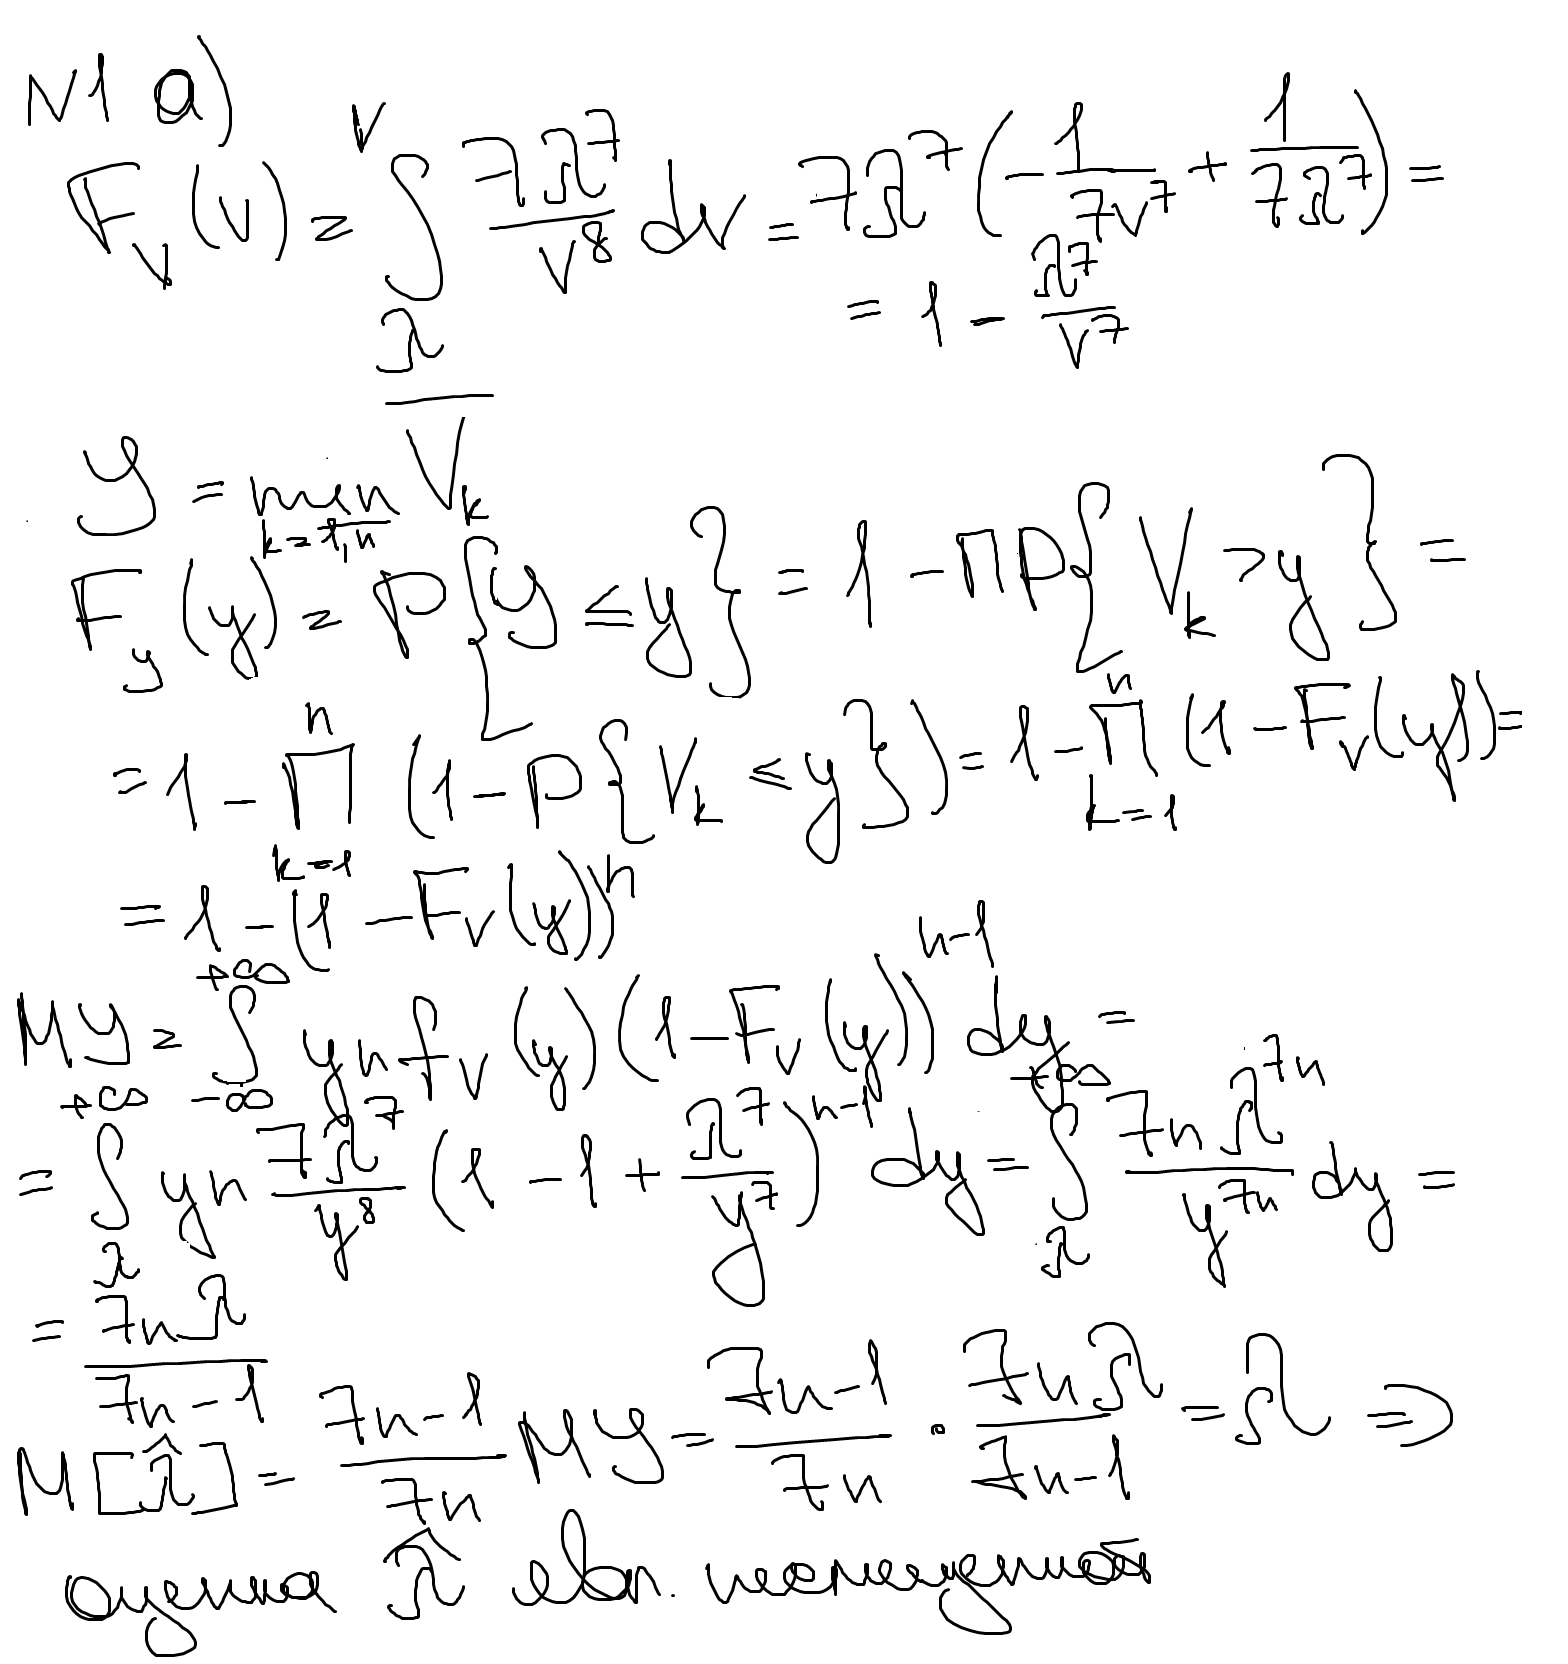 N1 a)
F_V(v) = ∫_λ^v 7λ^7/v^8 dv = 7λ^7 (-1/(7v^7) + 1/(7λ^7)) =
= 1 - λ^7/v^7
Y = min_{k=1,n} V_k
F_y(y) = P{Y ≤ y} = 1 - ΠP{V_k > y} =
= 1 - Π_{k=1}^n (1 - P{V_k ≤ y}) = 1 - Π_{k=1}^n (1 - F_V(y)) =
= 1 - (1 - F_V(y))^n
MY = ∫_{-∞}^{+∞} y n f_V(y) (1 - F_V(y))^{n-1} dy =
= ∫_λ^{+∞} y n 7λ^7/y^8 (1 - 1 + λ^7/y^7)^{n-1} dy = ∫_λ^{+∞} 7nλ^{7n}/y^{7n} dy =
= 7nλ/(7n-1)
M[λ̂] = (7n-1)/(7n) MY = (7n-1)/(7n) · 7nλ/(7n-1) = λ ⇒
оценка λ̂ явл. несмещенной